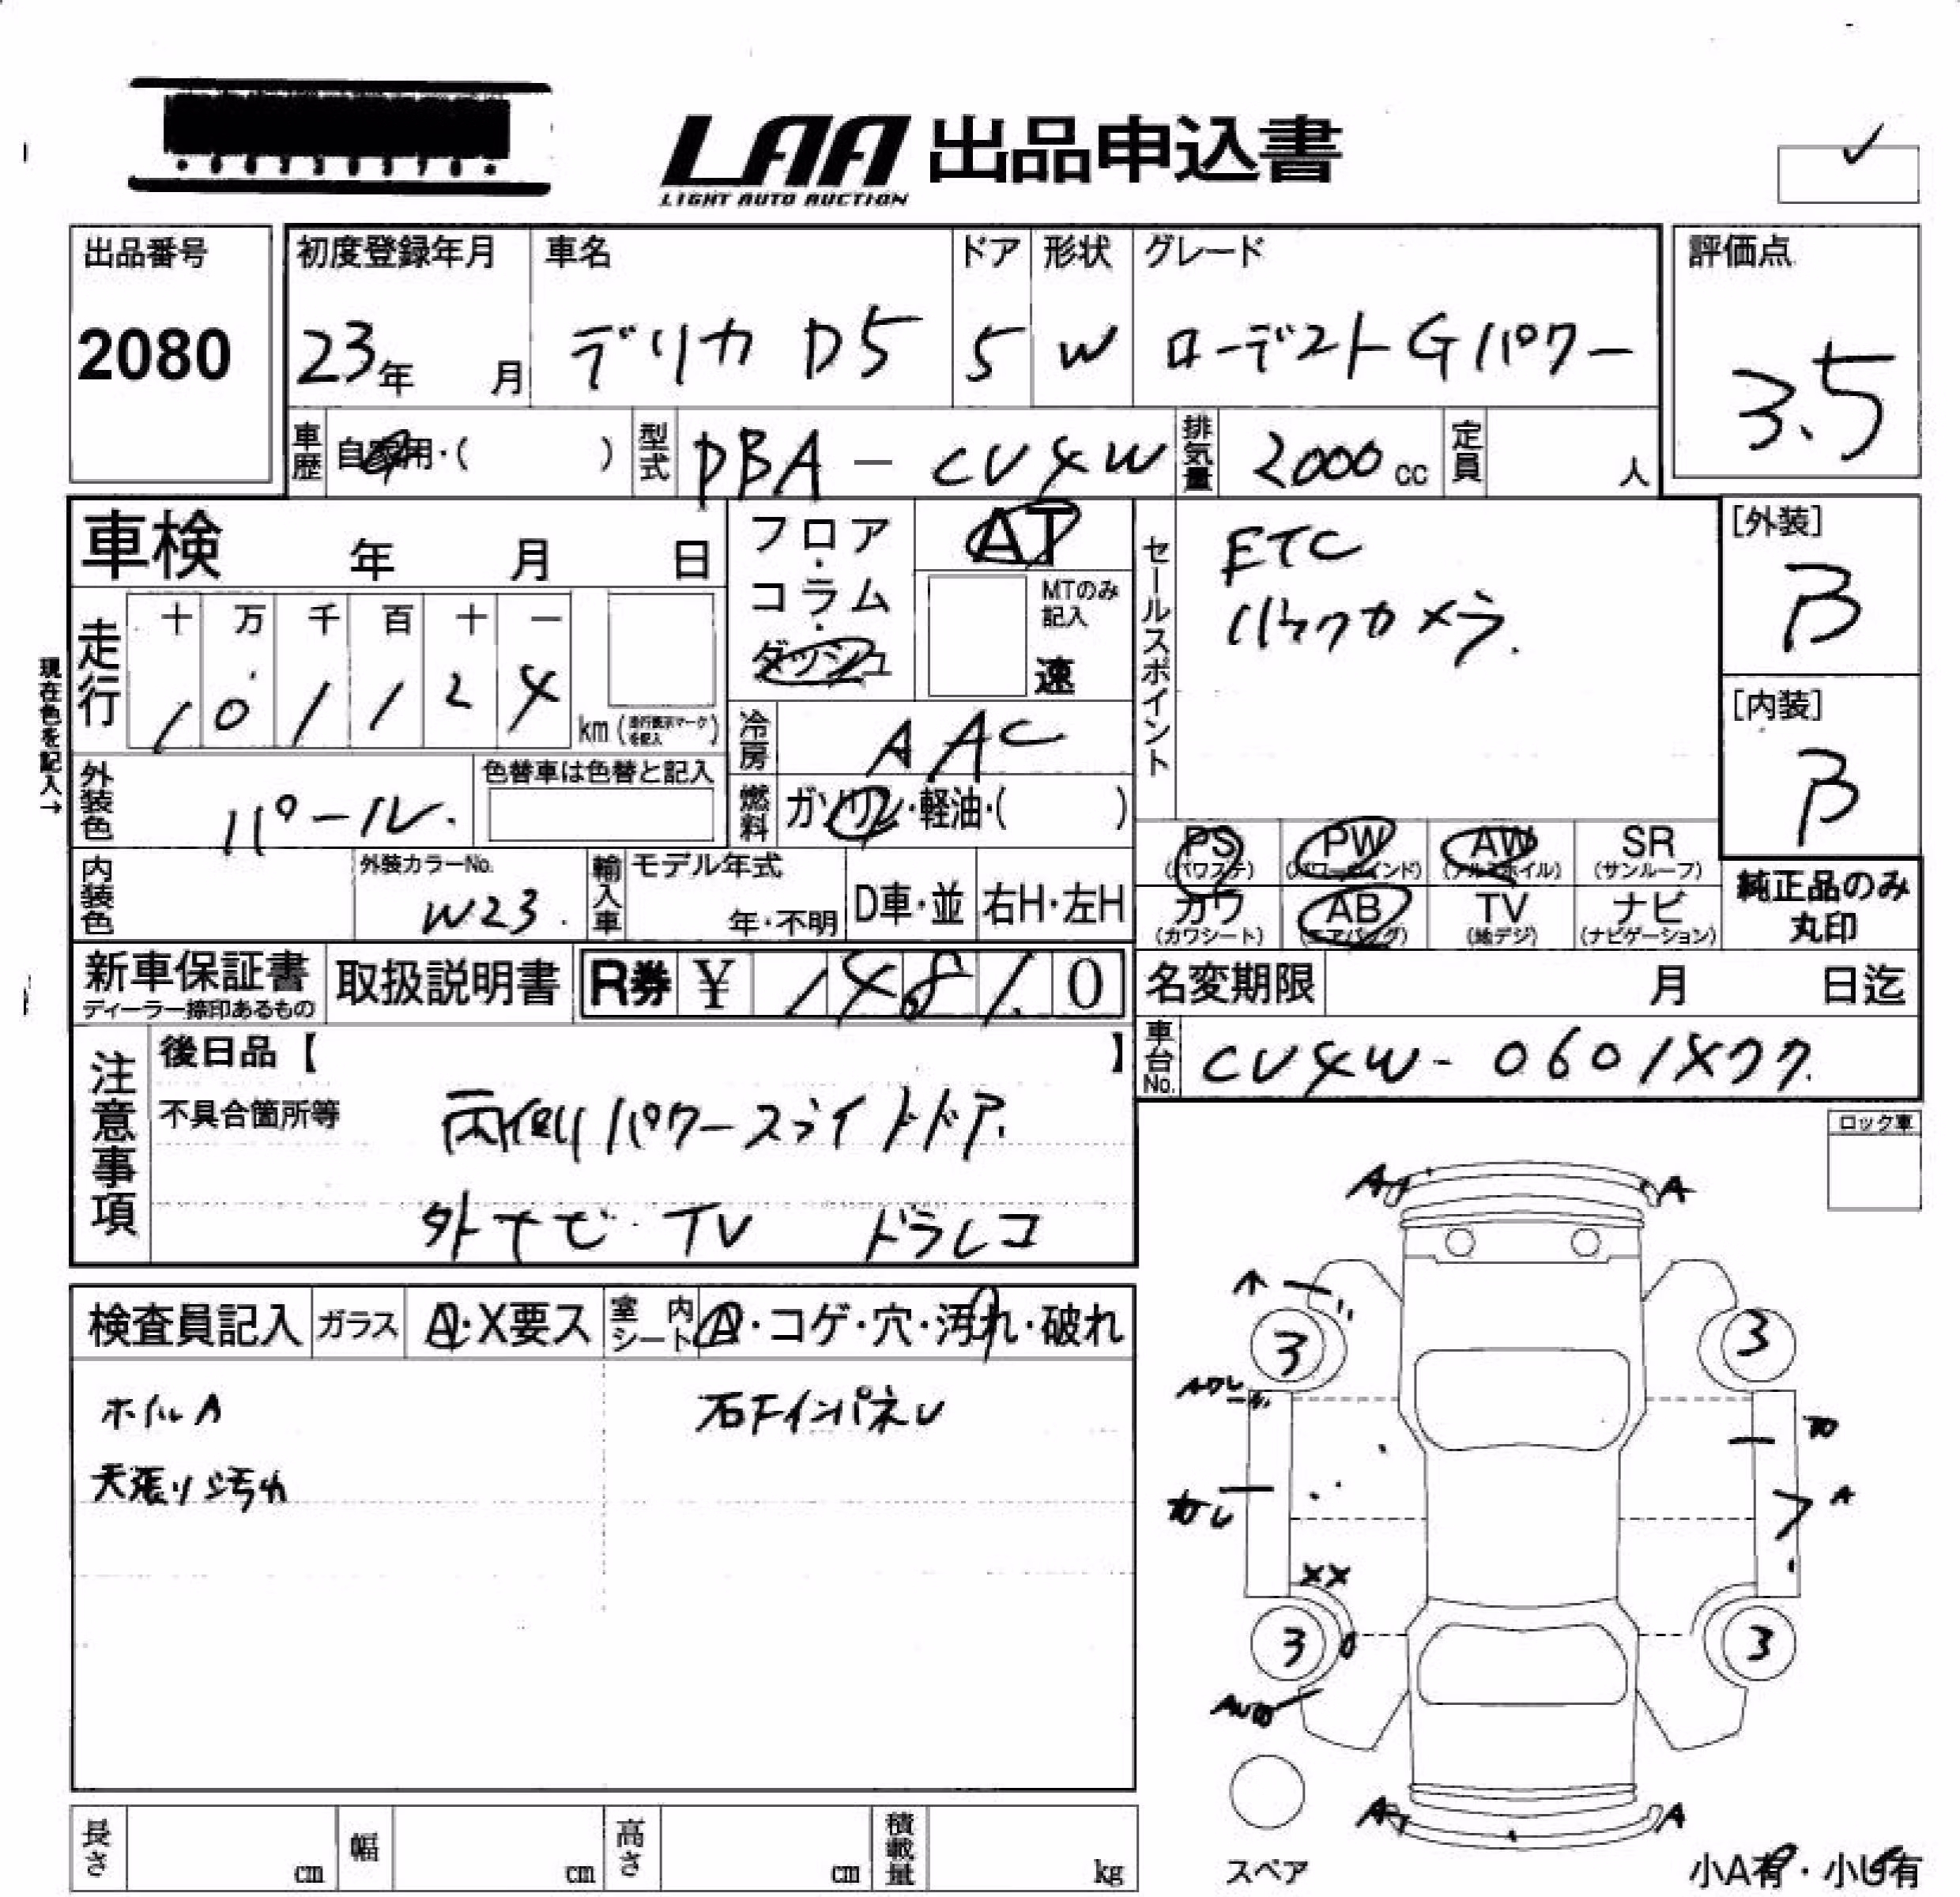 LAA 出品申込書
LIGHT AUTO AUCTION
出品番号
2080
初度登録年月 車名 ドア 形状 グレード
23年 月 デリカ D5 5 W ローデストGパワー
評価点
3.5
車歴 自家用・( ) 型式 DBA - CV4W 排気量 2000cc 定員 人
車検 年 月 日
フロア・コラム・ダッシュ
AT
MTのみ記入
速
セールスポイント
ETC
バックカメラ.
[外装]
B
[内装]
B
現在色を記入→
走行 十 万 千 百 十 一
1 0 1 1 2 4 km (走行表示マークを記入)
冷房 AAC
外装色 パール.
色替車は色替と記入
燃料 ガソリン・軽油・( )
PS (パワステ) PW (パワーウインド) AW (アルミホイル) SR (サンルーフ)
カワ (カワシート) AB (エアバッグ) TV (地デジ) ナビ (ナビゲーション)
純正品のみ
丸印
内装色 外装カラーNo. W23. 輸入車 モデル年式 年・不明 D車・並 右H・左H
新車保証書 ディーラー捺印あるもの 取扱説明書 R券 ¥ 1 4 8 1 0
名変期限 月 日迄
車台No. CV4W-0601
注意事項
後日品【 】
不具合箇所等 両側パワースライドドア.
外ナビ・TV ドラレコ
ロック車
検査員記入 ガラス A・X要ス 室内シート A・コゲ・穴・汚れ・破れ
ホイルA 右Fインパネレ
天張り汚れ
A A
3 3
カレ A
XX
3 3
A A
スペア
小A有・小U有
長さ cm 幅 cm 高さ cm 積載量 kg